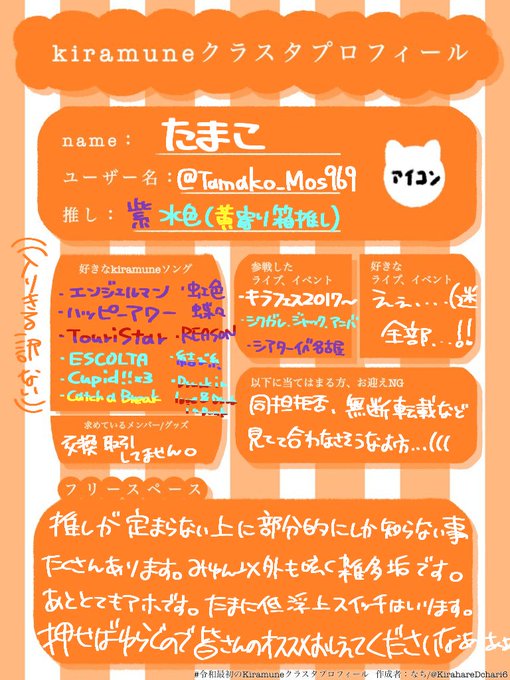 kiramuneクラスタプロフィール
name： たまこ
ユーザー名：@Tamako_Mos969
アイコン
推し： 紫 水色(黄寄り箱推し)
((入りきる訳ない))
好きなkiramuneソング
・エンジェルマン ・虹色
・ハッピーアワー 蝶々
・TouriStar ・REASON
・ESCOLTA ・結糸
・Cupid!!×3
・Catch a Break
参戦したライブ、イベント
・キラフェス2017〜
・シフガレ、ジャック、アニバ
・シアターイン名古屋
好きなライブ、イベント
ええ....(迷
全部...!!
求めているメンバー/グッズ
交換取引
してません。
以下に当てはまる方、お迎えNG
同担拒否、無断転載など
見てて合わなさそうな方...(((
フリースペース
推しが定まらない上に部分的にしか知らない事
たくさんあります。みゅん以外も呟く雑多垢です。
あととてもアホです。たまに低浮上スイッチはいります。
押せばゆらぐので皆さんのオススメおしえてくださいなぁ
#令和最初のKiramuneクラスタプロフィール 作成者：なち/@KirahareDchari6